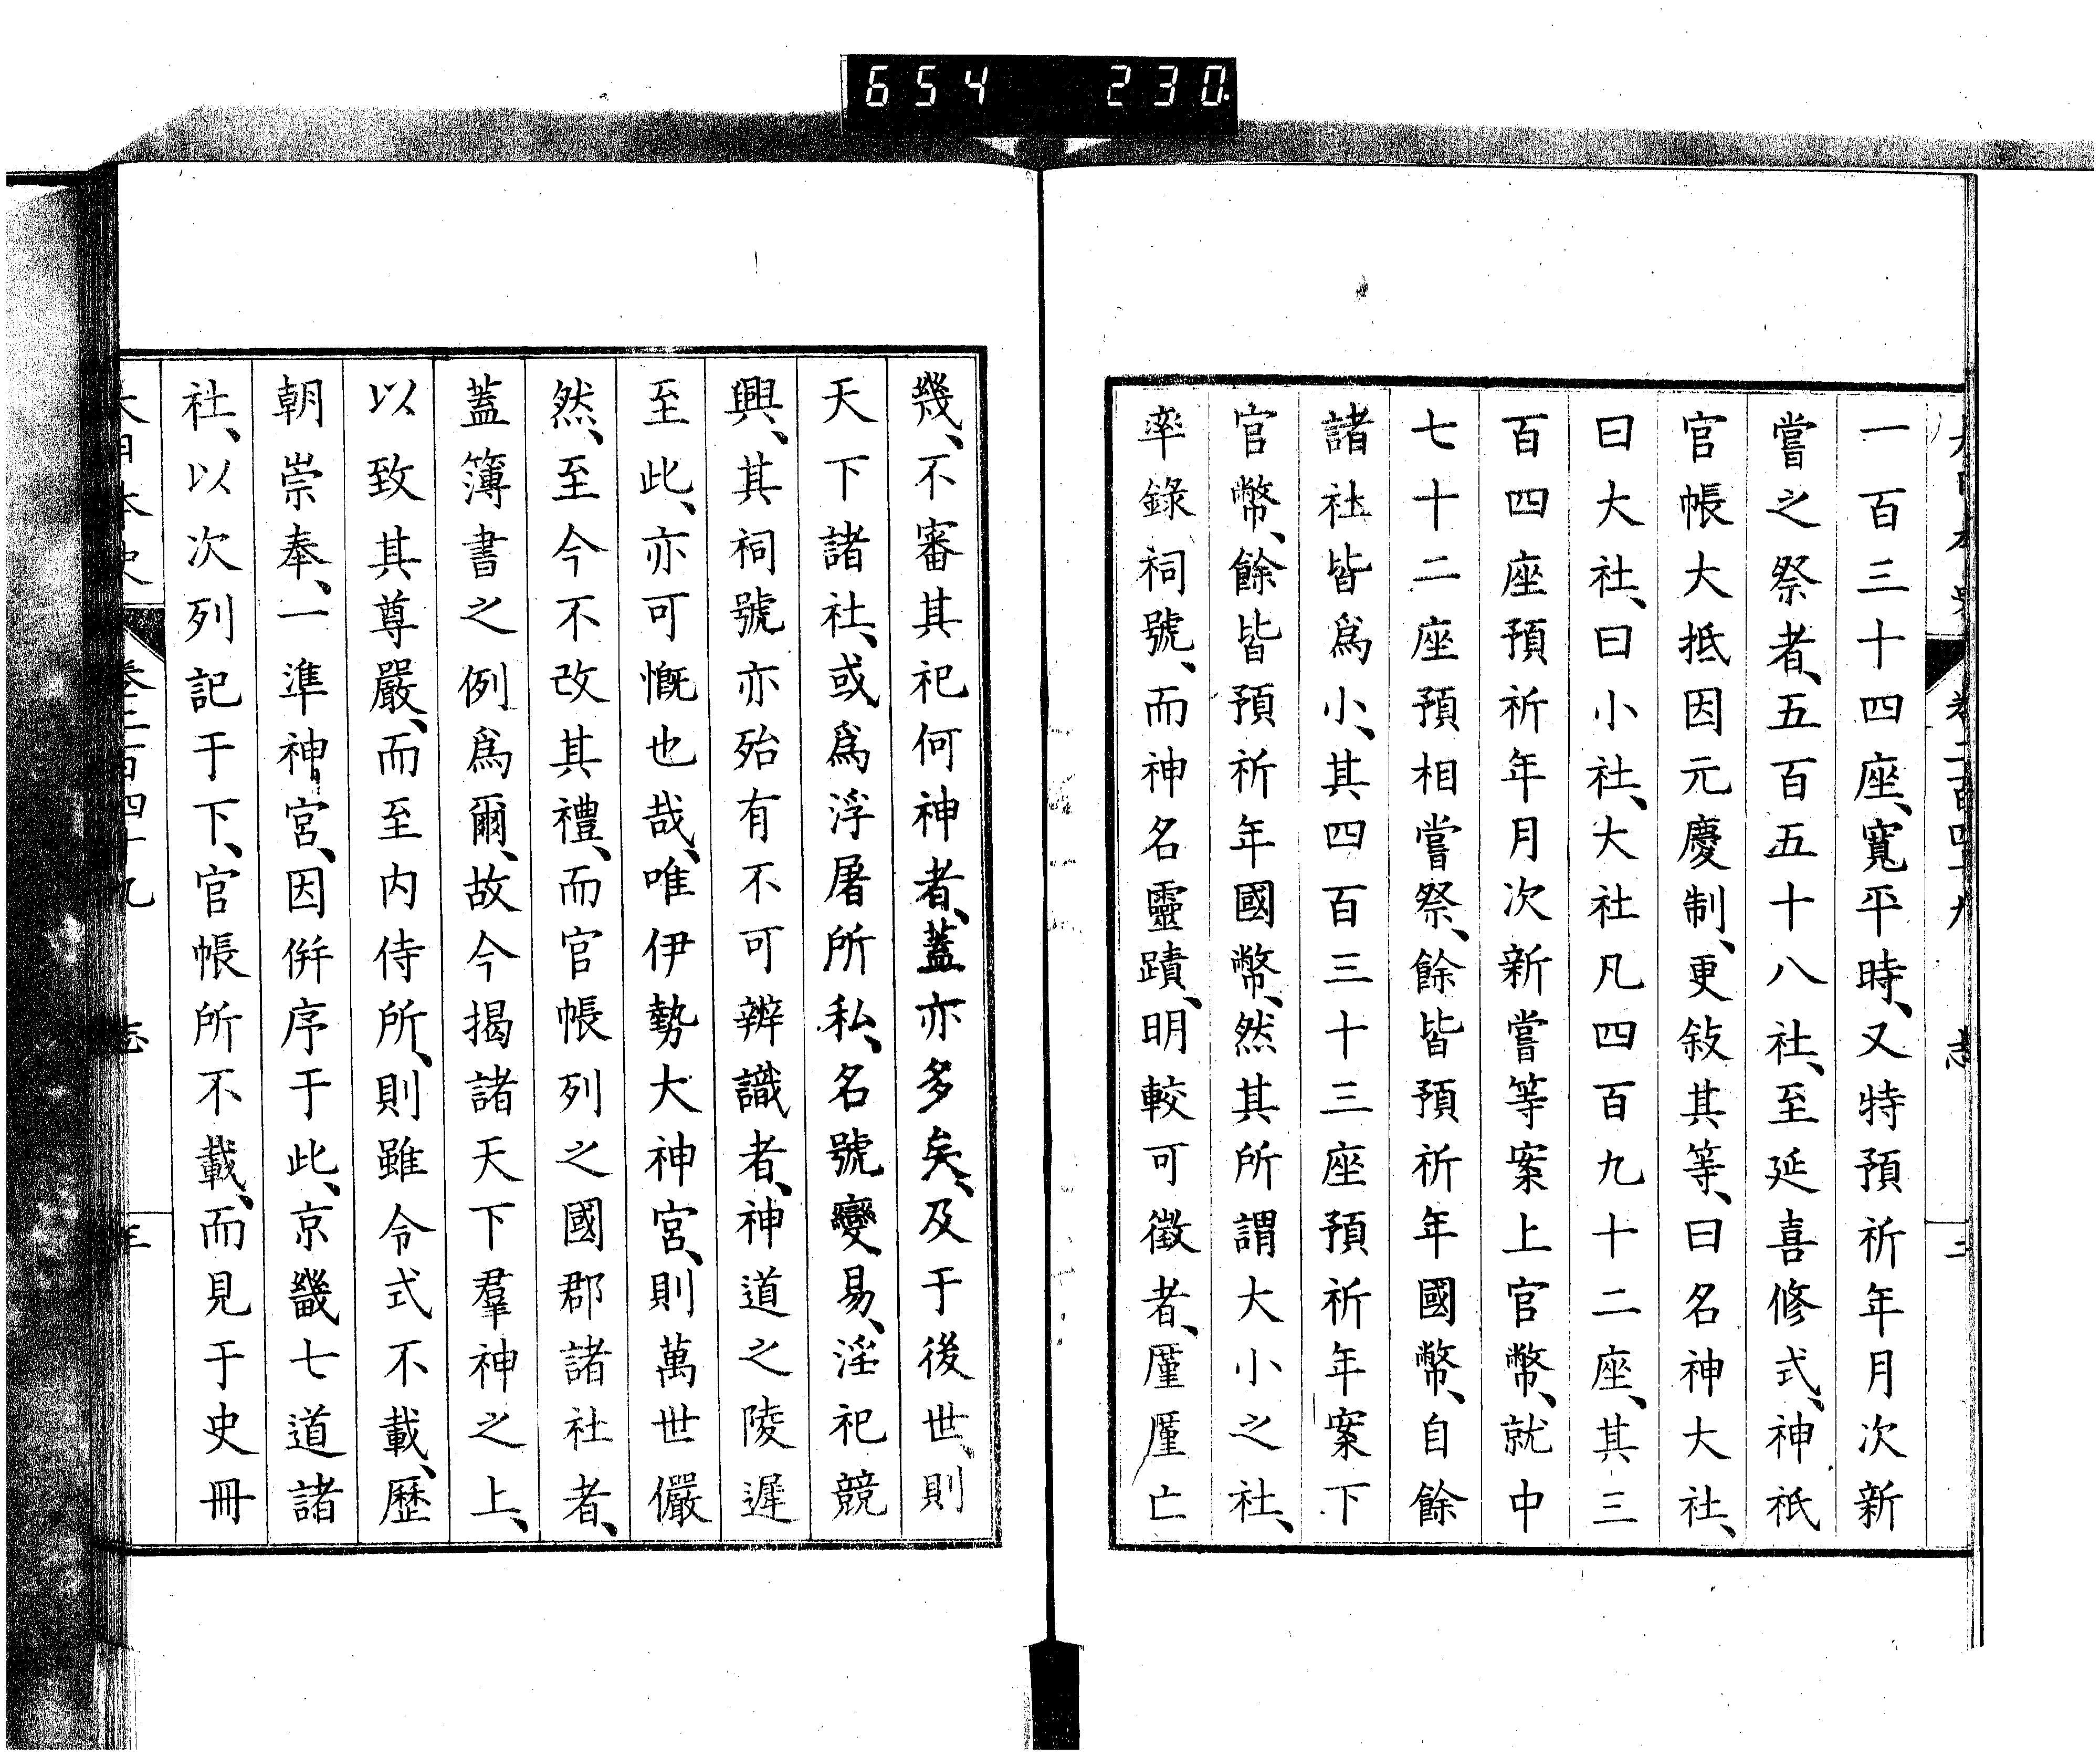 654 230
大日本史 卷二百四十九 志 三
一百三十四座、寬平時、又特預祈年月次新
嘗之祭者、五百五十八社、至延喜修式、神祇
官帳大抵因元慶制、更敍其等、曰名神大社、
曰大社、曰小社、大社凡四百九十二座、其三
百四座預祈年月次新嘗等案上官幣、就中
七十二座預相嘗祭、餘皆預祈年國幣、自餘
諸社皆爲小、其四百三十三座預祈年案下
官幣、餘皆預祈年國幣、然其所謂大小之社、
率錄祠號、而神名靈蹟、明較可徵者、厪厪亡
幾、不審其祀何神者、蓋亦多矣、及于後世、則
天下諸社、或爲浮屠所私、名號變易、淫祀競
興、其祠號亦殆有不可辨識者、神道之陵遲
至此、亦可慨也哉、唯伊勢大神宮、則萬世儼
然、至今不改其禮、而官帳列之國郡諸社者、
蓋簿書之例爲爾、故今揭諸天下羣神之上、
以致其尊嚴、而至內侍所、則雖令式不載、歷
朝崇奉、一準神宮、因倂序于此、京畿七道諸
社、以次列記于下、官帳所不載、而見于史冊
大日本史 卷二百四十九 志 三